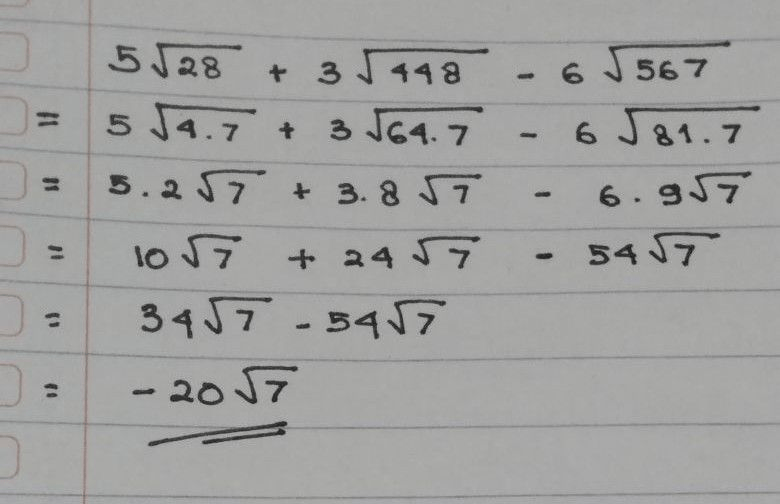 5√28 + 3√448 - 6√567
= 5√4.7 + 3√64.7 - 6√81.7
= 5.2√7 + 3.8√7 - 6.9√7
= 10√7 + 24√7 - 54√7
= 34√7 - 54√7
= -20√7